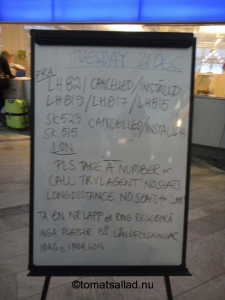 TUESDAY 21 DEC
FRA
LH821 CANCELLED/INSTÄLLD
LH819/LH817/LH815
SK523 CANCELLED/INSTÄLLDA
SK515
LON
PLS TAKE A NUMBER OR
CALL TRVLAGENT NO SEATS
LONGDISTANCE NO SEATS
TA EN NR LAPP el RING RESEBYRÅ
INGA PLATSER PÅ LÅNGFLYGNINGAR
IDAG & IMORGON
©tomatsallad.nu